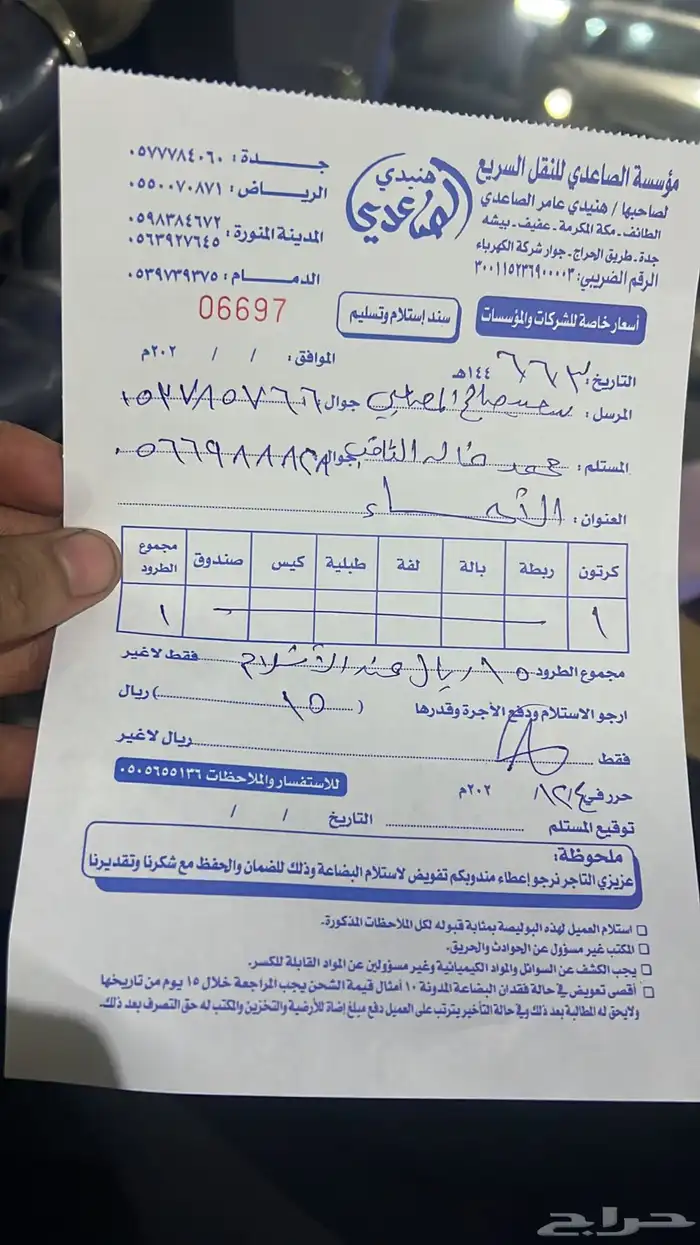 مؤسسة الصاعدي للنقل السريع
لصاحبها / هنيدي عامر الصاعدي
الطائف - مكة المكرمة - عفيف - بيشه
جدة - طريق الحراج - جوار شركة الكهرباء
الرقم الضريبي: ٣٠٠١١٥٢٣٦٩٠٠٠٠٣
هنيدي
الصاعدي
جـــدة: ٠٥٧٧٧٨٤٠٦٠
الريـــاض: ٠٥٥٠٠٧٠٨٧١
المدينة المنورة: ٠٥٩٨٣٨٤٦٧٢
٠٥٦٣٩٢٧٦٤٥
الدمـــام: ٠٥٣٩٧٣٩٣٧٥
06697
أسعار خاصة للشركات والمؤسسات
سند إستلام وتسليم
التاريخ: ١٤٤هـ
الموافق: / / ٢٠٢م
المرسل: سعيد صالح جوال:
المستلم: محمد خالد جوال: ٠٥٦٦٩٨٨٨٢٨
العنوان:
كرتون ربطة بالة لفة طبلية كيس صندوق مجموع الطرود
١ ١
مجموع الطرود ١٥ ريال عند الأستلام فقط لاغير
ارجو الاستلام ودفع الأجرة وقدرها ( ١٥ ) ريال
فقط ريال لاغير
حرر في ٢٠٢م
للاستفسار والملاحظات ٠٥٠٥٦٥٥١٣٦
توقيع المستلم التاريخ / /
ملحوظة:
عزيزي التاجر نرجو إعطاء مندوبكم تفويض لاستلام البضاعة وذلك للضمان والحفظ مع شكرنا وتقديرنا
استلام العميل لهذه البوليصة بمثابة قبوله لكل الملاحظات المذكورة.
المكتب غير مسؤول عن الحوادث والحريق.
يجب الكشف عن السوائل والمواد الكيميائية وغير مسؤولين عن المواد القابلة للكسر.
أقصى تعويض في حالة فقدان البضاعة المدونة ١٠ أمثال قيمة الشحن يجب المراجعة خلال ١٥ يوم من تاريخها
ولايحق له المطالبة بعد ذلك وفي حالة التأخير يترتب على العميل دفع مبلغ إضافة للأرضية والتخزين والمكتب له حق التصرف بعد ذلك.
حراج